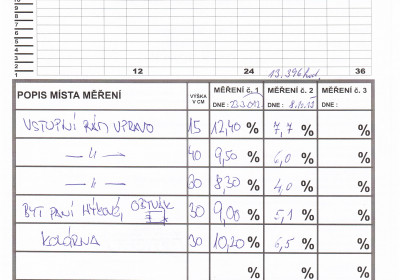 10
9
8
7
6
5
4
3
2
1
12 24 36
13.396 hod.
POPIS MÍSTA MĚŘENÍ VÝŠKA V CM MĚŘENÍ č. 1 DNE: 23.3.2012 MĚŘENÍ č. 2 DNE: MĚŘENÍ č. 3 DNE:
VSTUPNÍ RÁM VPRAVO 15 12,40 % 7,7 % %
— 11 — 40 9,50 % 6,0 % %
— 11 — 30 8,30 % 4,0 % %
BYT PANÍ 30 9,00 % 5,1 % %
KOLÁRNA 30 10,20 % 6,5 % %
% % %